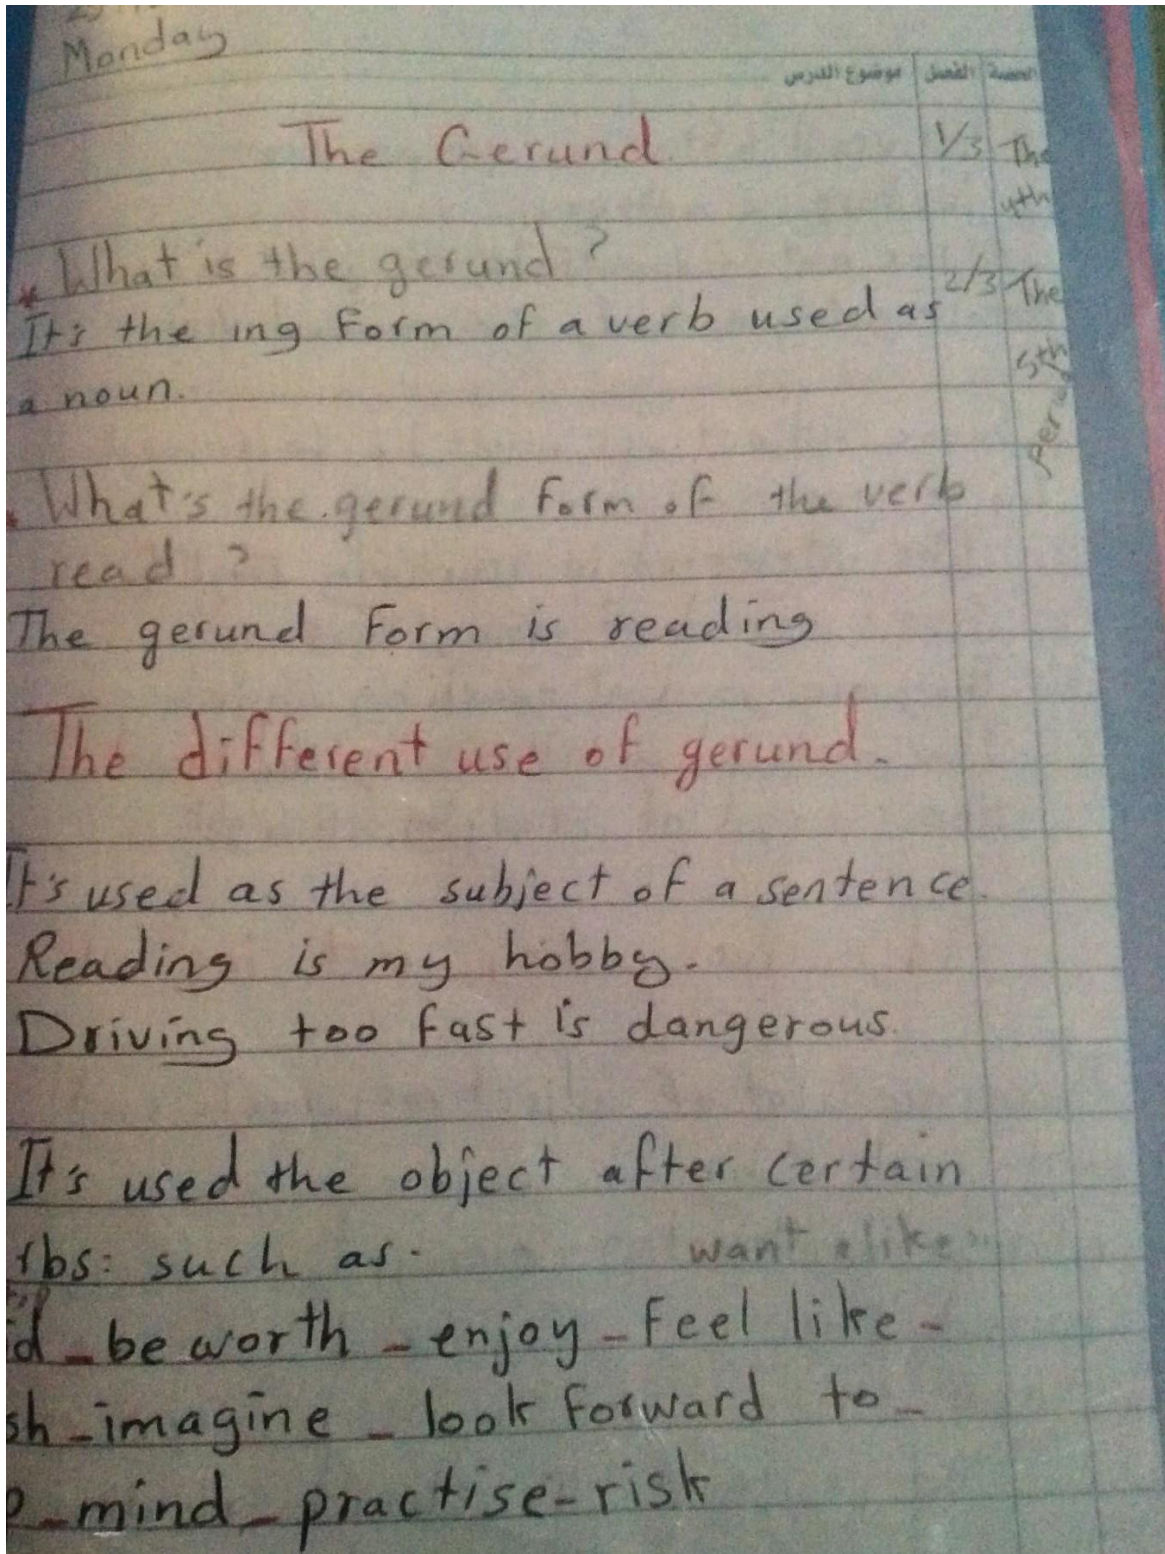 Monday
موضوع الدرس الفصل الحصة
The Gerund
1/3 The
4th
What is the gerund?
2/3 The
It's the ing form of a verb used as
5th
a noun.
Per
What's the gerund form of the verb
read?
The gerund form is reading
The different use of gerund.
It's used as the subject of a sentence.
Reading is my hobby.
Driving too fast is dangerous.
It's used the object after certain
rbs: such as.
want like
d - be worth - enjoy - feel like -
sh - imagine - look forward to -
- mind - practise - risk